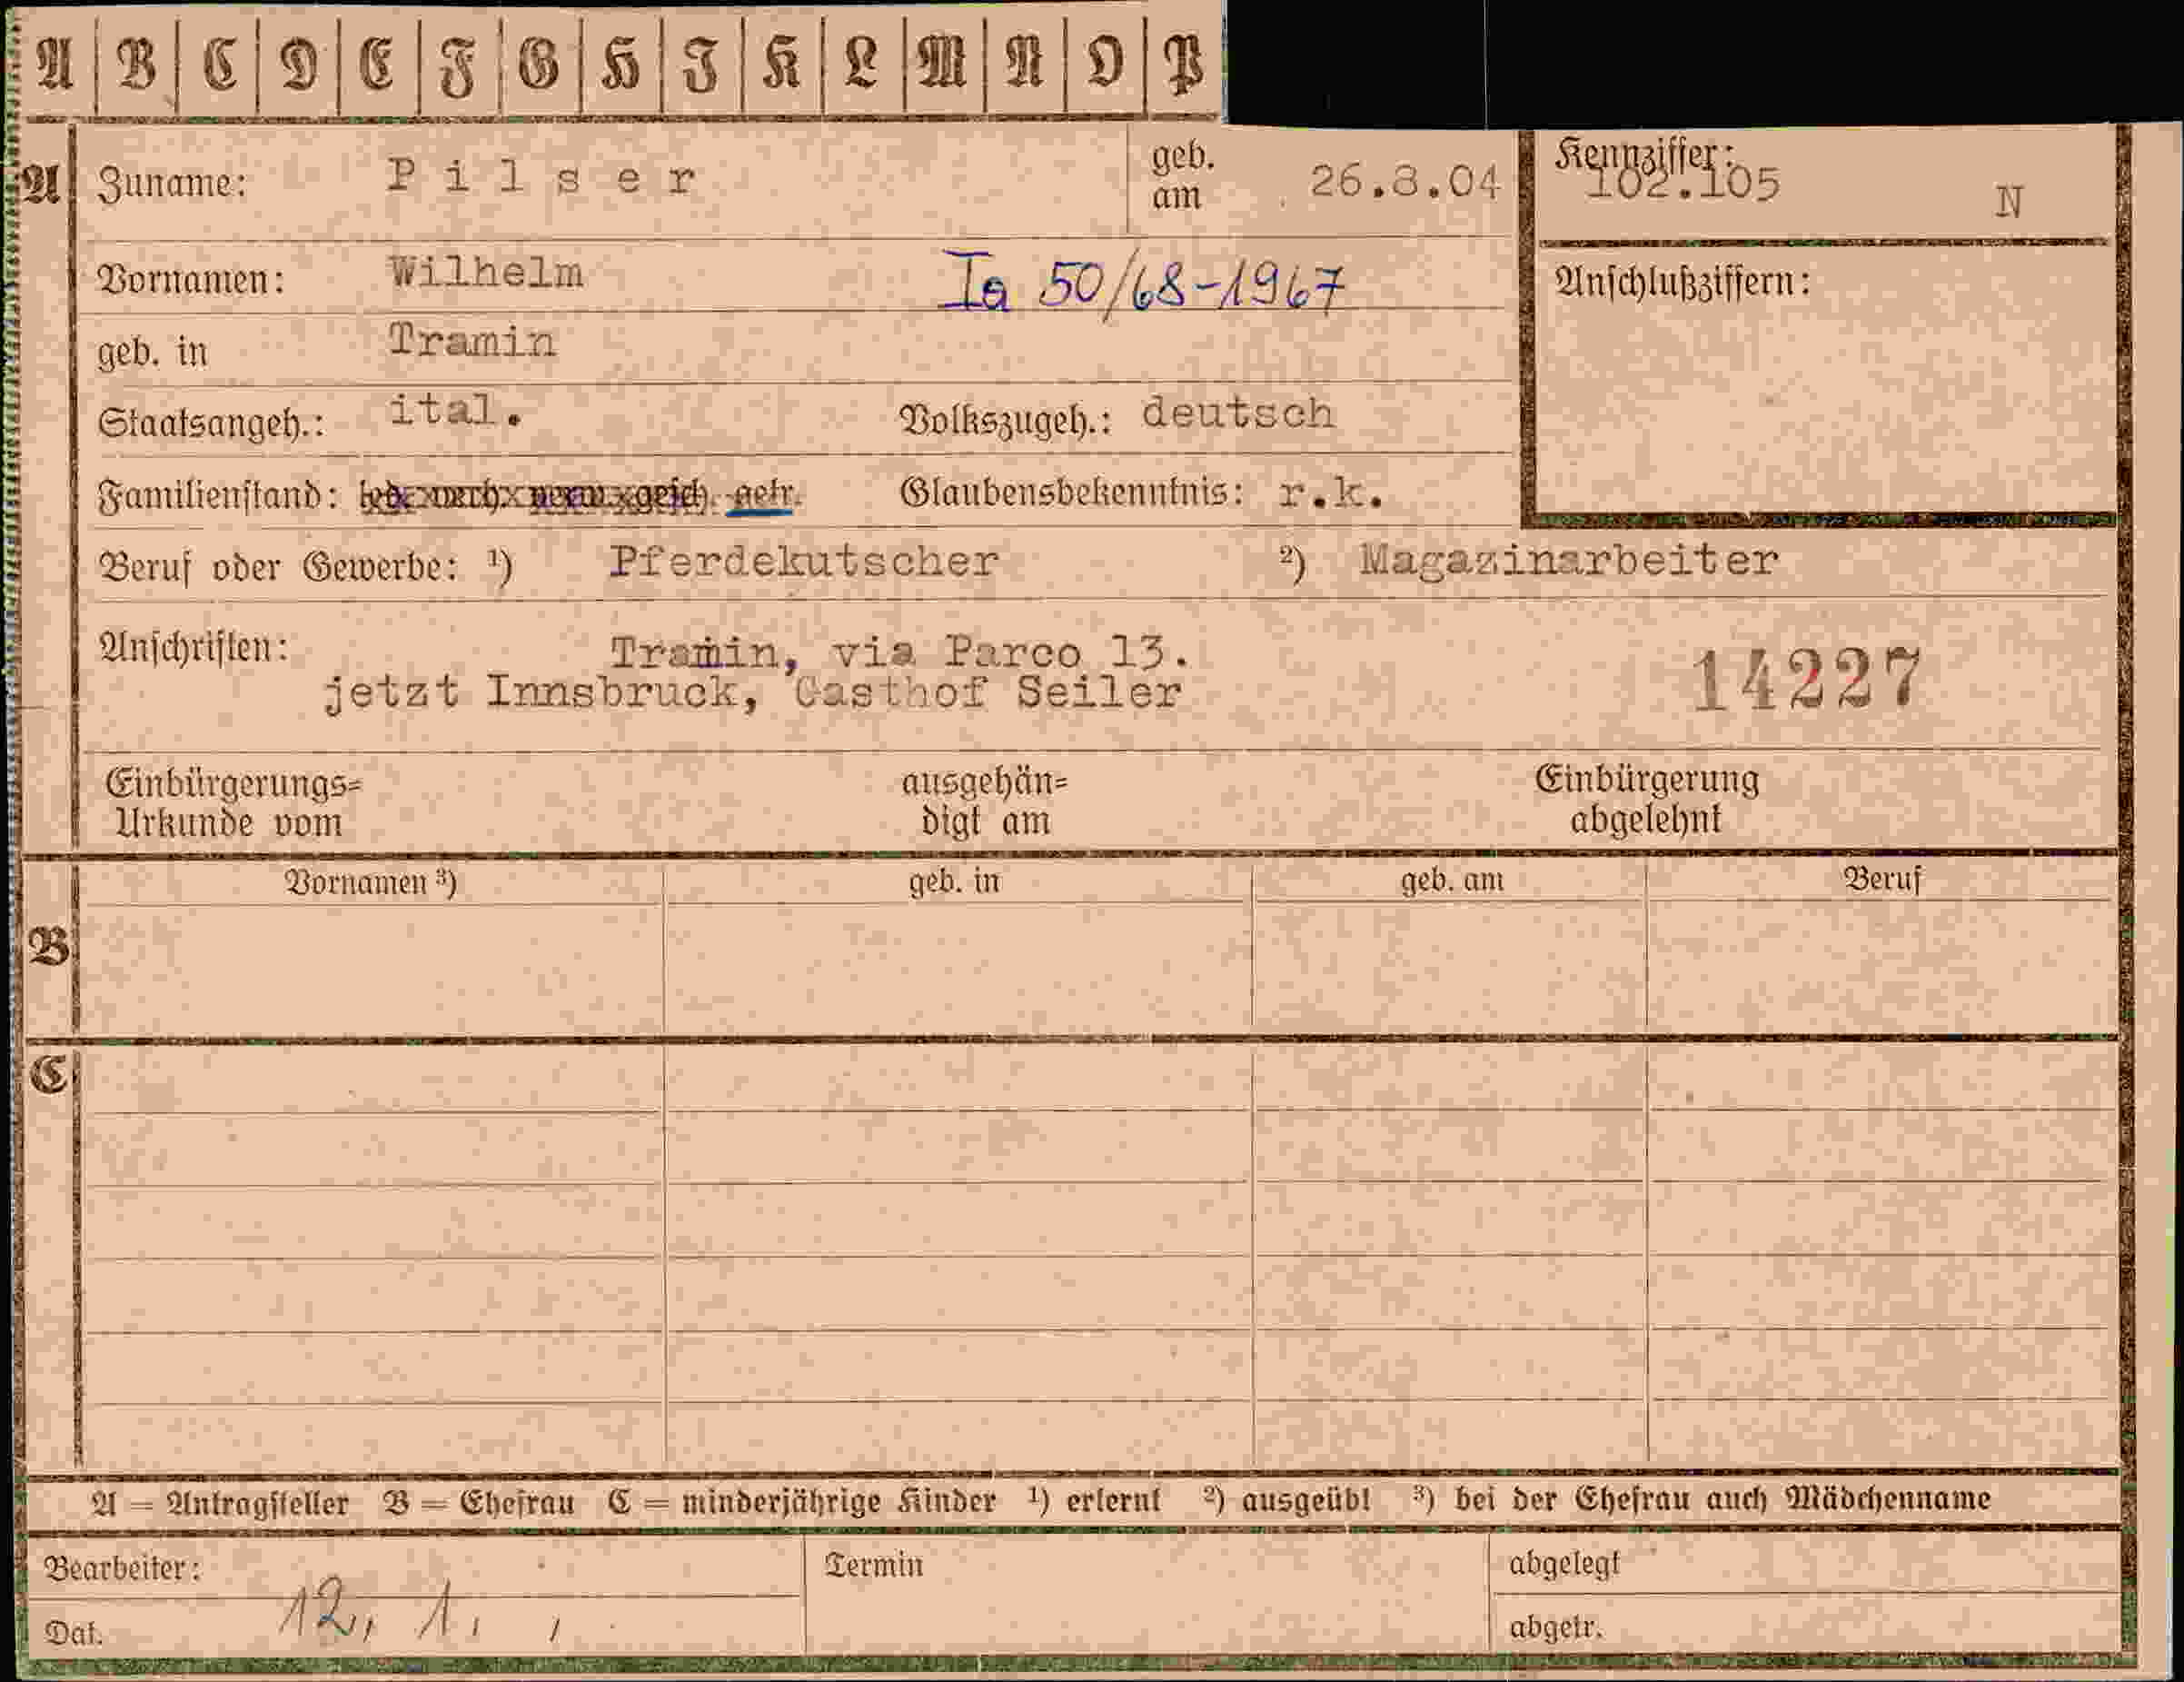 A B C D E F G H I K L M N O P
A Zuname: Pilser geb. am 26.8.04 Kennziffer: 102.105 N
Vornamen: Wilhelm Ia 50/68-1967 Anschlußziffern:
geb. in Tramin
Staatsangeh.: ital. Volkszugeh.: deutsch
Familienstand: led. verh. verw. gesch. getr. Glaubensbekenntnis: r.k.
Beruf oder Gewerbe: ¹) Pferdekutscher ²) Magazinarbeiter
Anschriften: Tramin, via Parco 13.
jetzt Innsbruck, Gasthof Seiler 14227
Einbürgerungs= ausgehän= Einbürgerung
Urkunde vom digt am abgelehnt
Vornamen ³) geb. in geb. am Beruf
B
C
A = Antragsteller B = Ehefrau C = minderjährige Kinder ¹) erlernt ²) ausgeübt ³) bei der Ehefrau auch Mädchenname
Bearbeiter: Termin abgelegt
Dat. 12. 1. abgetr.